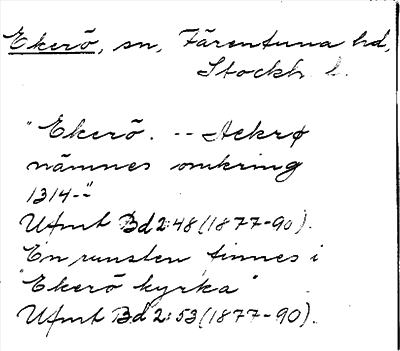 Ekerö, sn, Färentuna hd,
Stockh. l.
"Ekerö. -- Aekrø
nämnes omkring
1314-"
Ufmt Bd 2:48 (1877-90).
En runsten finnes i
"Ekerö kyrka".
Ufmt Bd 2:53 (1877-90).